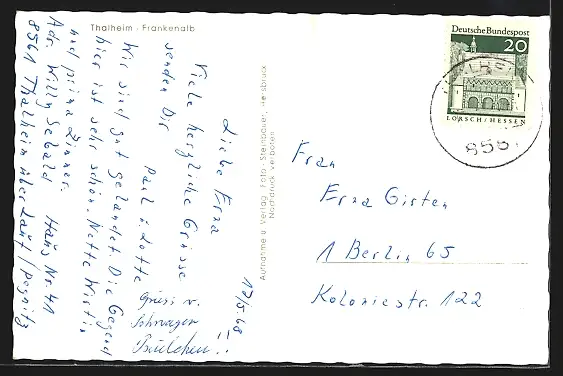 Thalheim - Frankenalb
Liebe Erna
Viele herzliche Grüsse
senden Dir
Paul u. Lotte
Wir sind gut gelandet. Die Gegend
hier ist sehr schön. Nette Wirtin
und prima Zimmer.
Adr. Willy Sebald Haus Nr. 41
8561 Thalheim über Lauf/Pegnitz
17/5 68
Gruss v.
Schwager
!!
Aufnahme u. Verlag Foto-Steinbauer, Hersbruck
Nachdruck verboten
Deutsche Bundespost
20
LORSCH/HESSEN
Frau
Erna Girten
1 Berlin 65
Koloniestr. 122